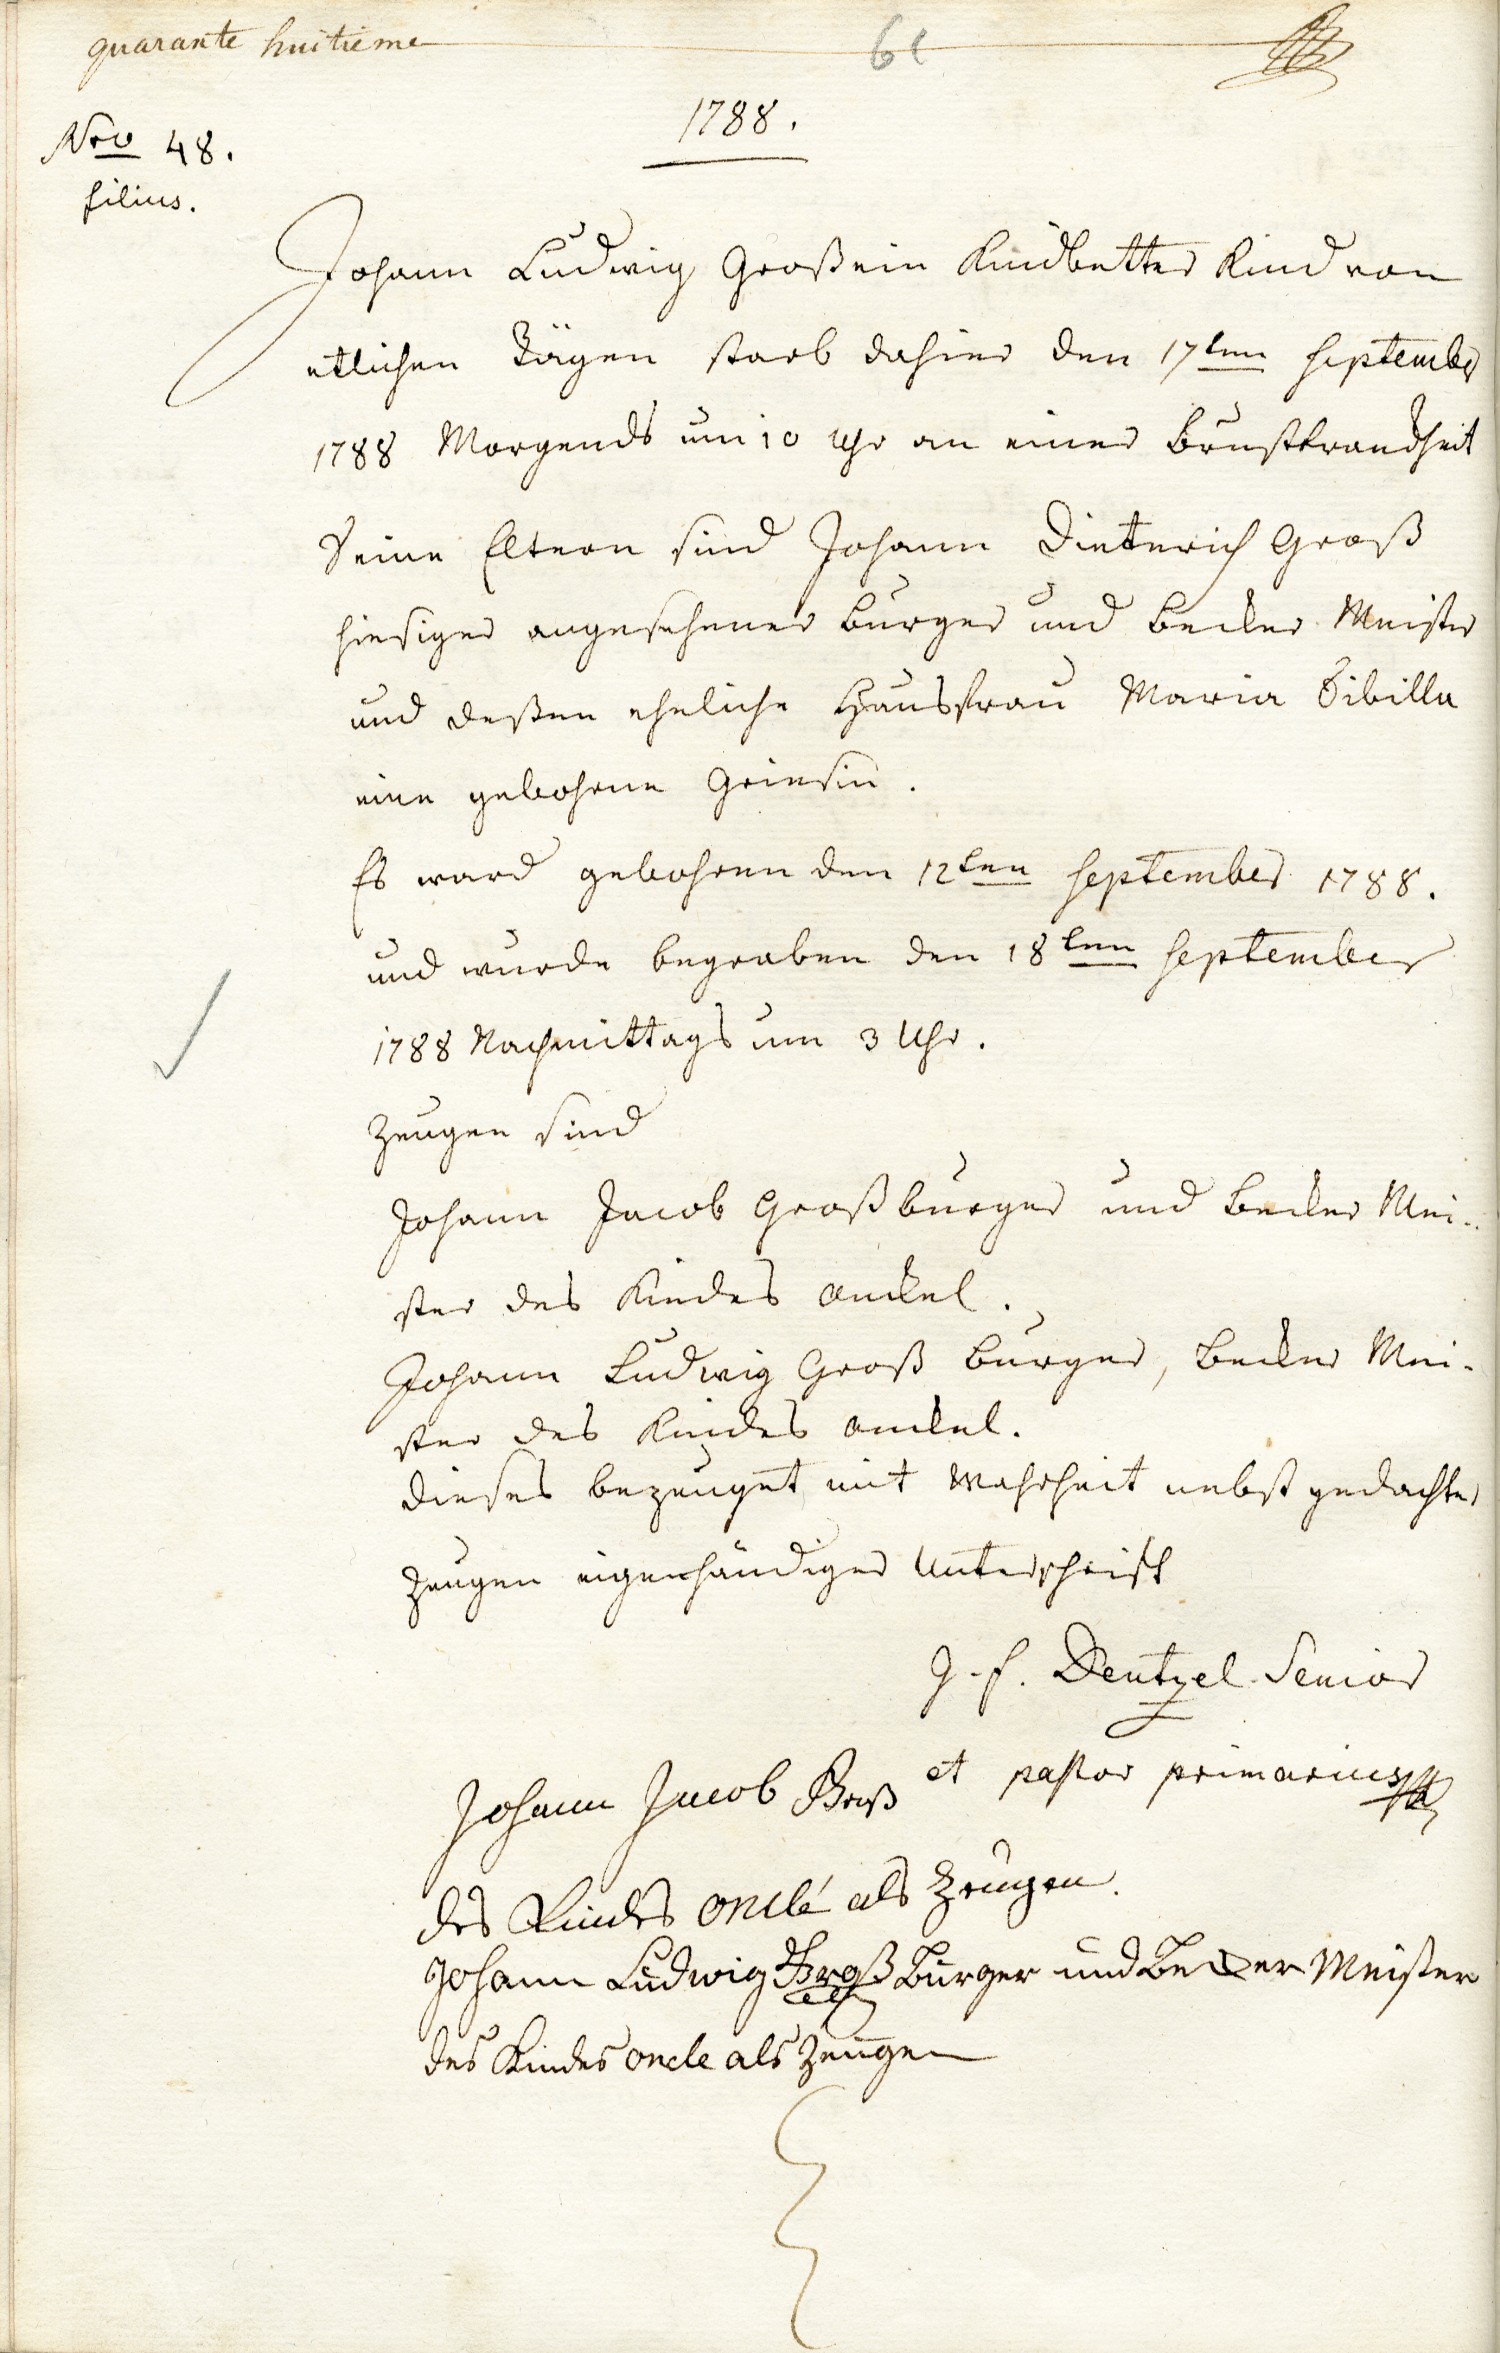 quarante huitieme
61
1788.
Nro 48.
filius.
Johann Ludwig Groß ein Kindbetter Kind von
etlichen Tägen starb dahier den 17ten September
1788 Morgends um 10 Uhr an einer Brustkrandheit
Seine Eltern sind Johann Dieterich Groß
hiesiger angesehener burger und becker Meister
und deßen eheliche Hausfrau Maria Sibilla
eine gebohrne Griesin.
Es ward gebohren den 12ten September 1788.
und wurde begraben den 18ten September
1788 Nachmittags um 3 Uhr.
Zeugen sind
Johann Jacob Groß burger und becker Mei-
ster des Kindes onckel.
Johann Ludwig Groß burger, becker Mei-
ster des Kindes onckel.
dieses bezeuget mit Wahrheit nebst gedachter
Zeugen eigenhändiger Unterschrift
J. F. Dentzel Senior
et pastor primarius
Johann Jacob Groß
des Kindes onclé als Zeugen.
Johann Ludwig Groß Burger und Becker Meister
des Kindes oncle als Zeugen